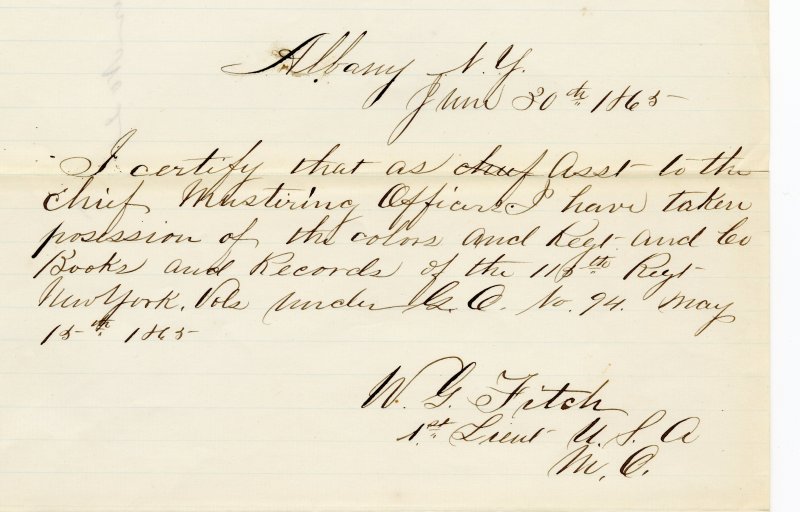 Albany N.Y.
June 30th 1865
I certify that as chief Asst to the
Chief Mustiring Officer I have taken
posission of the colors and Regt and Co
Books and Records of the 115th Regt
New York. Vols under G. O. No. 94. May
15th 1865
W. G. Fitch
1st Lieut U. S. A
M. O.